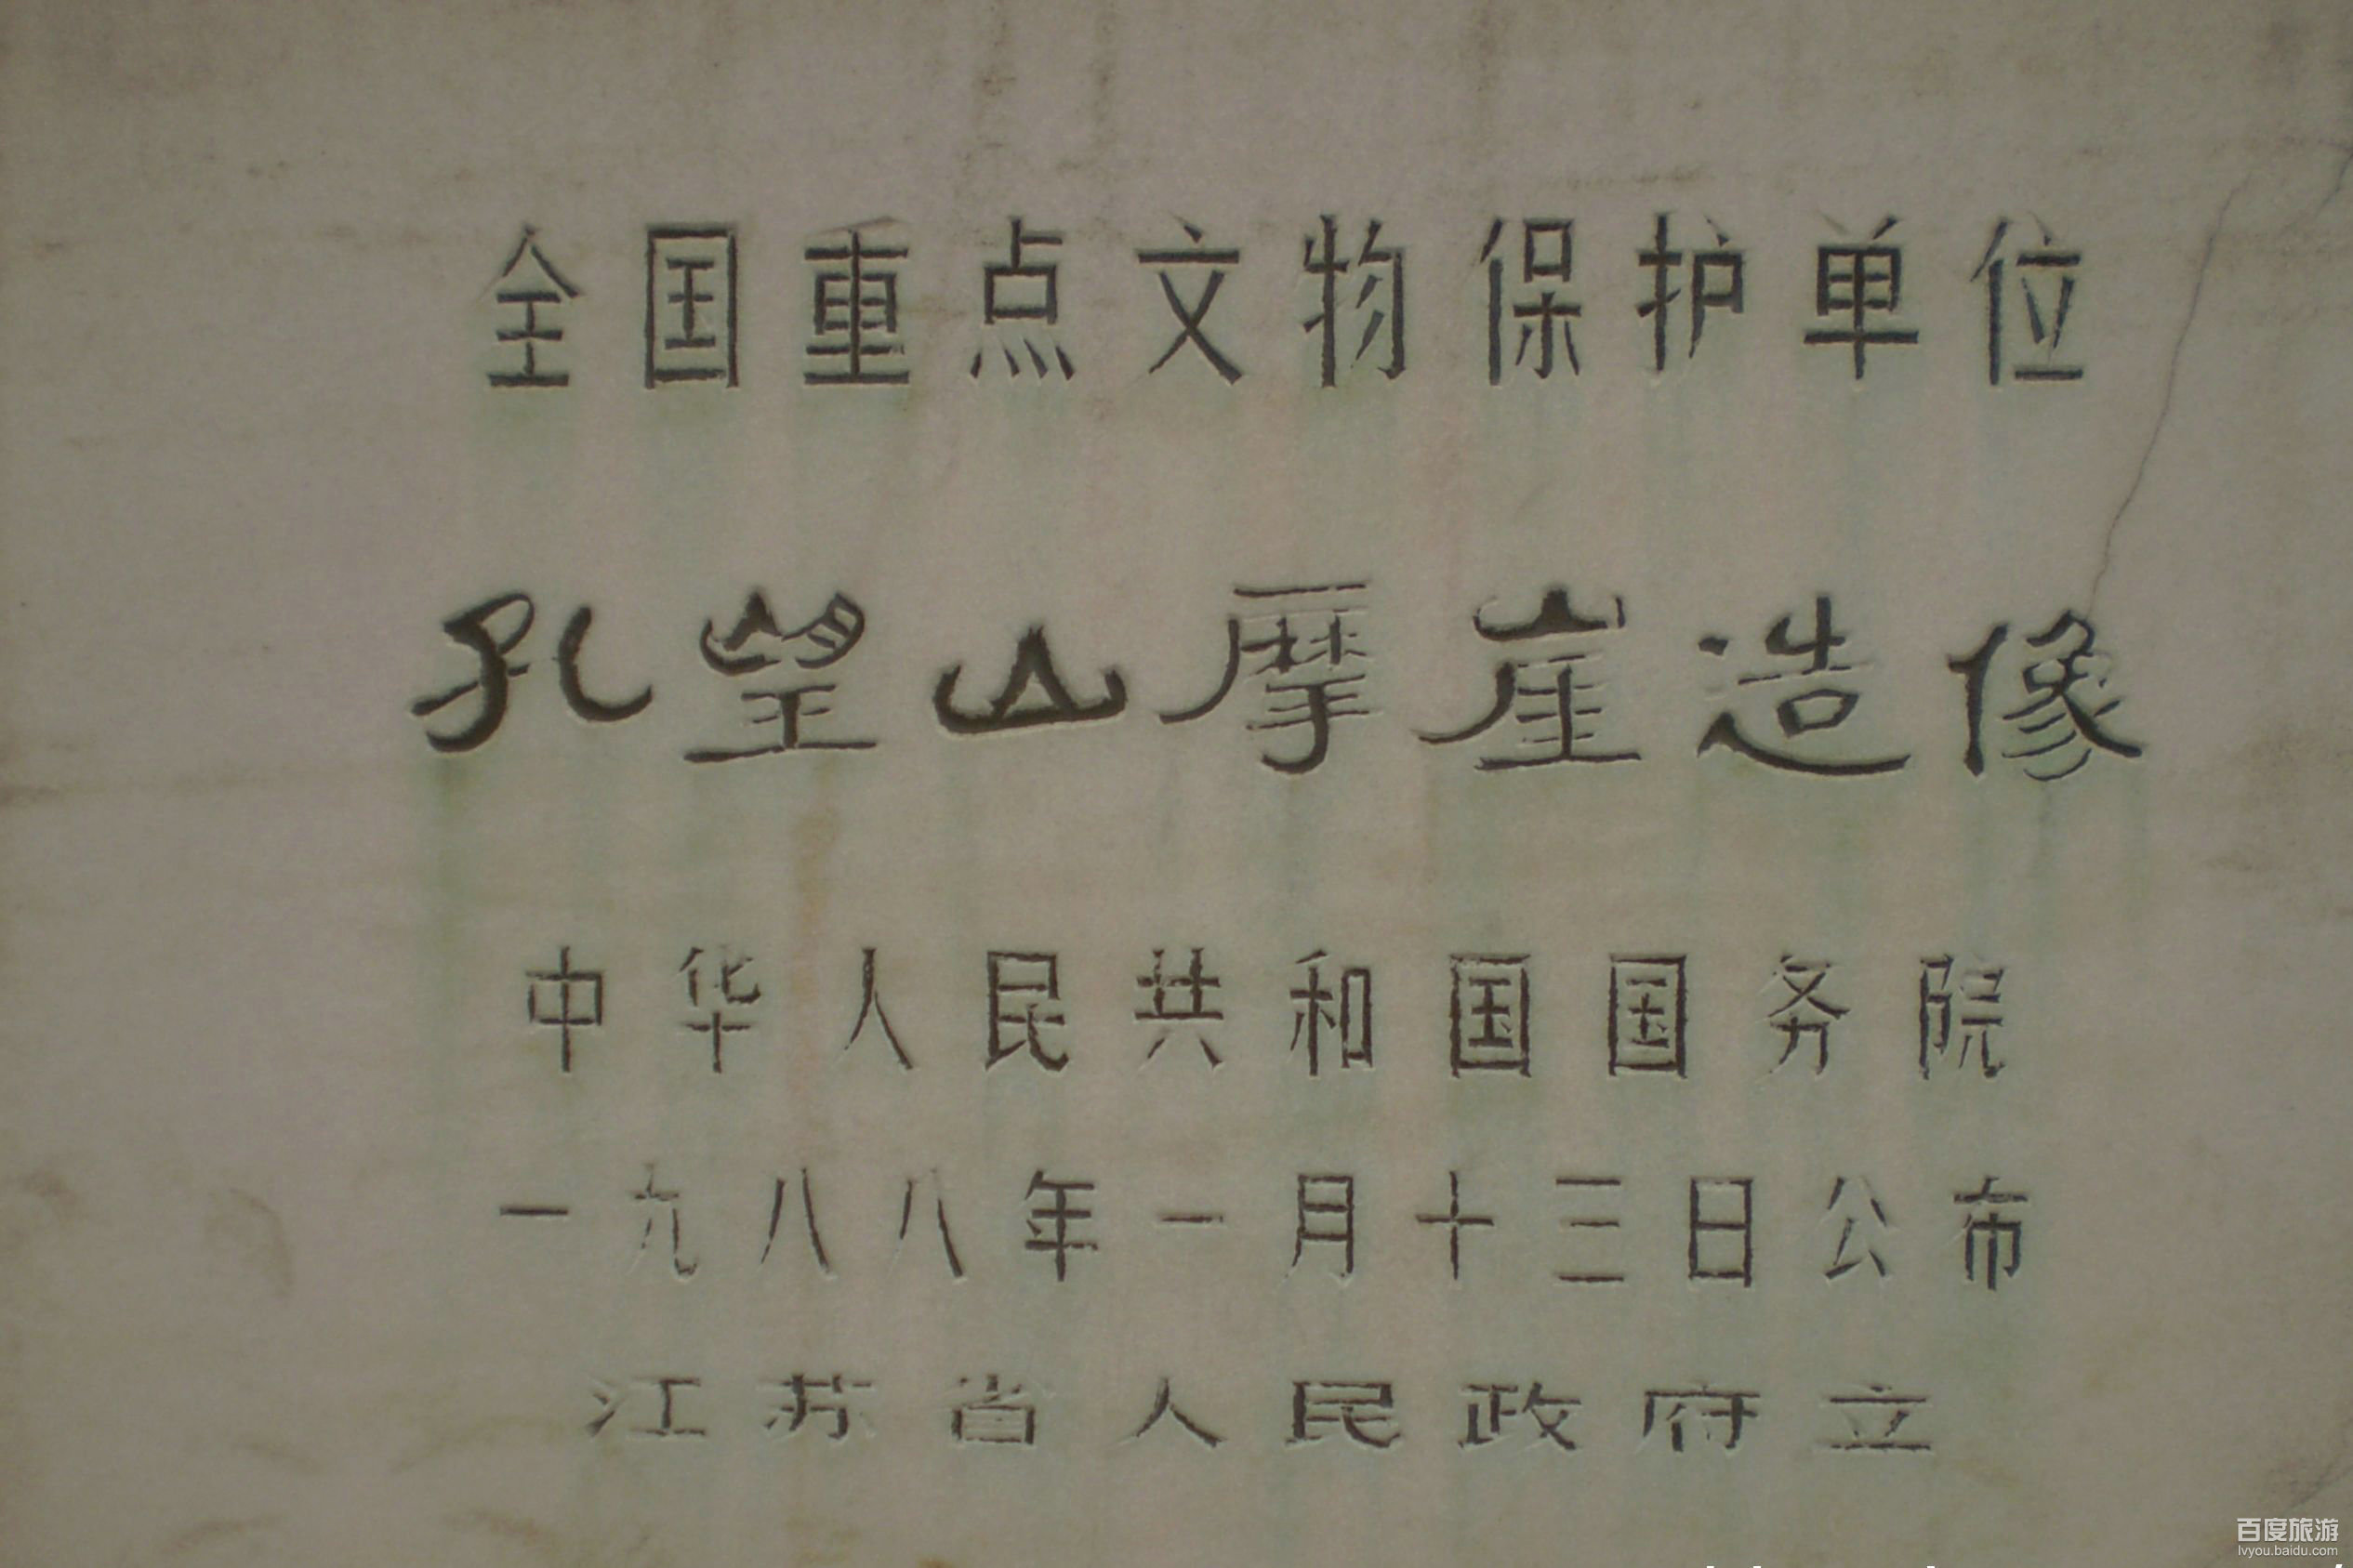 全国重点文物保护单位
孔望山摩崖造像
中华人民共和国国务院
一九八八年一月十三日公布
江苏省人民政府立
百度旅游
lvyou.baidu.com